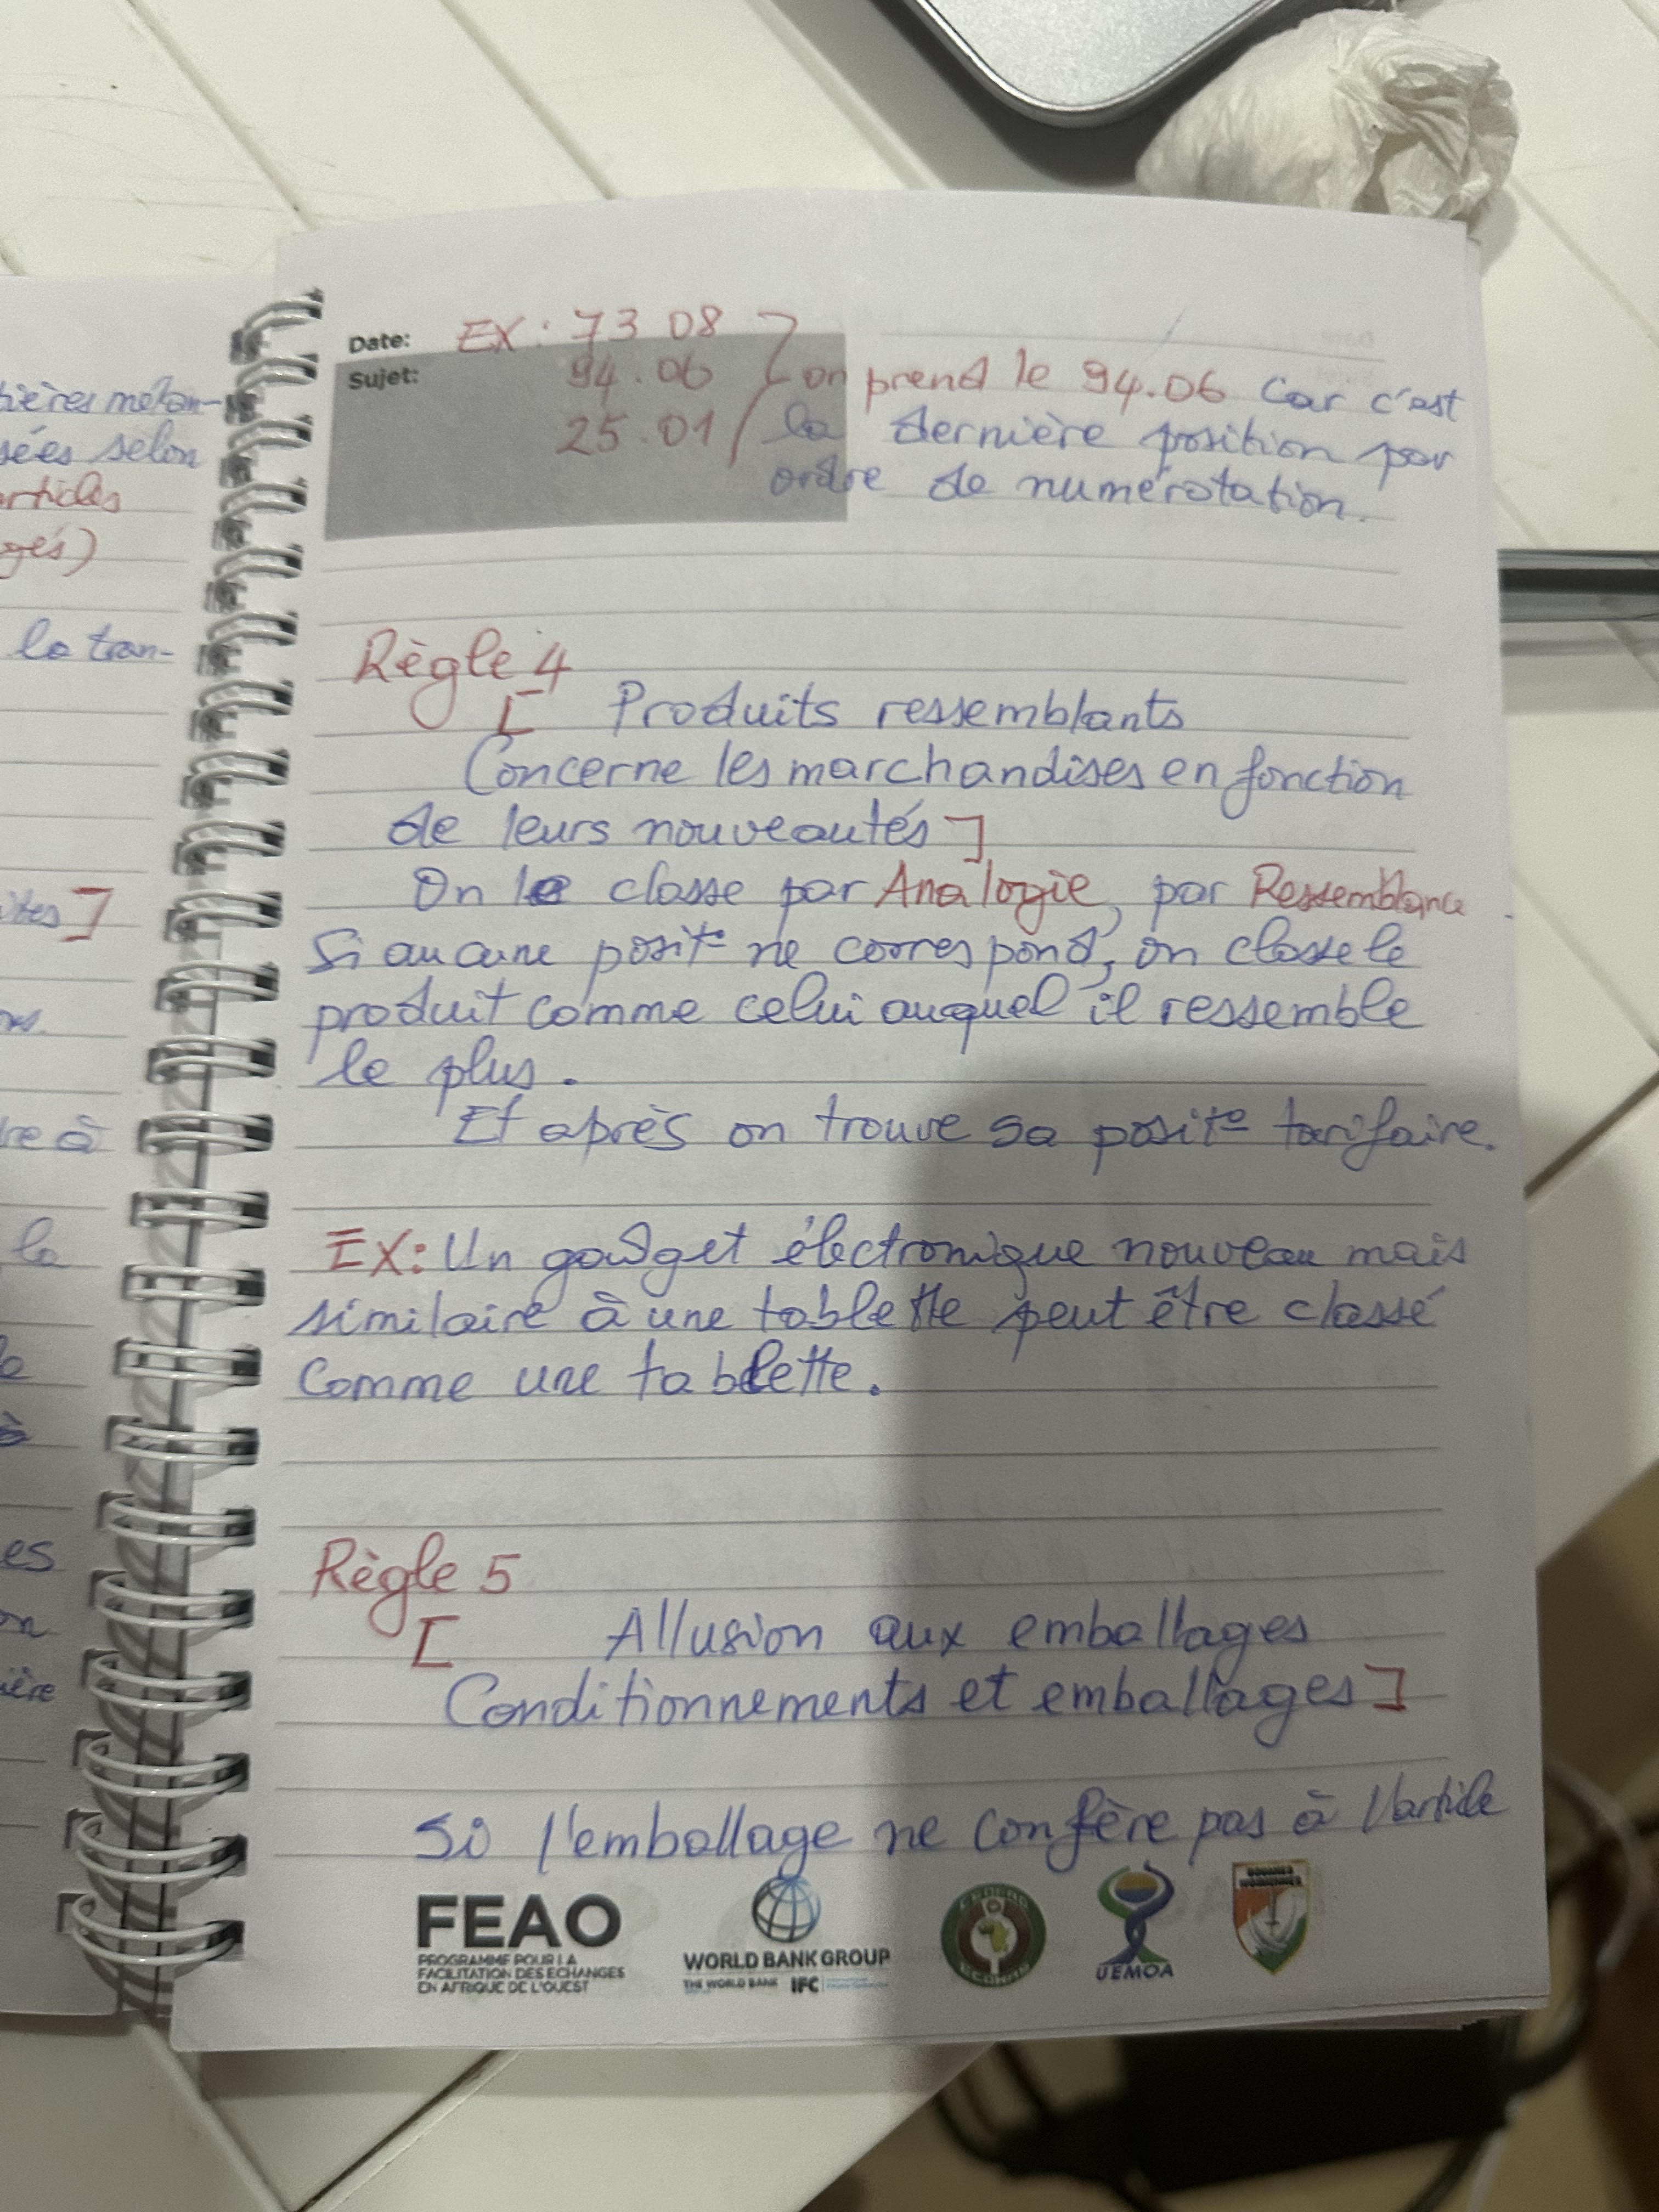 tières mélan-
sées selon
articles
gés)
la tran-
ites]
re à
la
à
es
on
ière
Date: EX: 73 08
Sujet: 94.06 on prend le 94.06 car c'est
25.01 la dernière position par
ordre de numérotation.
Règle 4
[ Produits ressemblants
Concerne les marchandises en fonction
de leurs nouveautés]
On le classe par Analogie, par Ressemblance
Si aucune posit° ne correspond, on classe le
produit comme celui auquel il ressemble
le plus.
Et après on trouve sa posit° tarifaire.
EX: Un gadget électronique nouveau mais
similaire à une tablette peut être classé
comme une tablette.
Règle 5
[ Allusion aux emballages
Conditionnements et emballages]
Si l'emballage ne confère pas à l'article
FEAO
PROGRAMME POUR LA
FACILITATION DES ECHANGES
EN AFRIQUE DE L'OUEST
WORLD BANK GROUP
THE WORLD BANK IFC
UEMOA